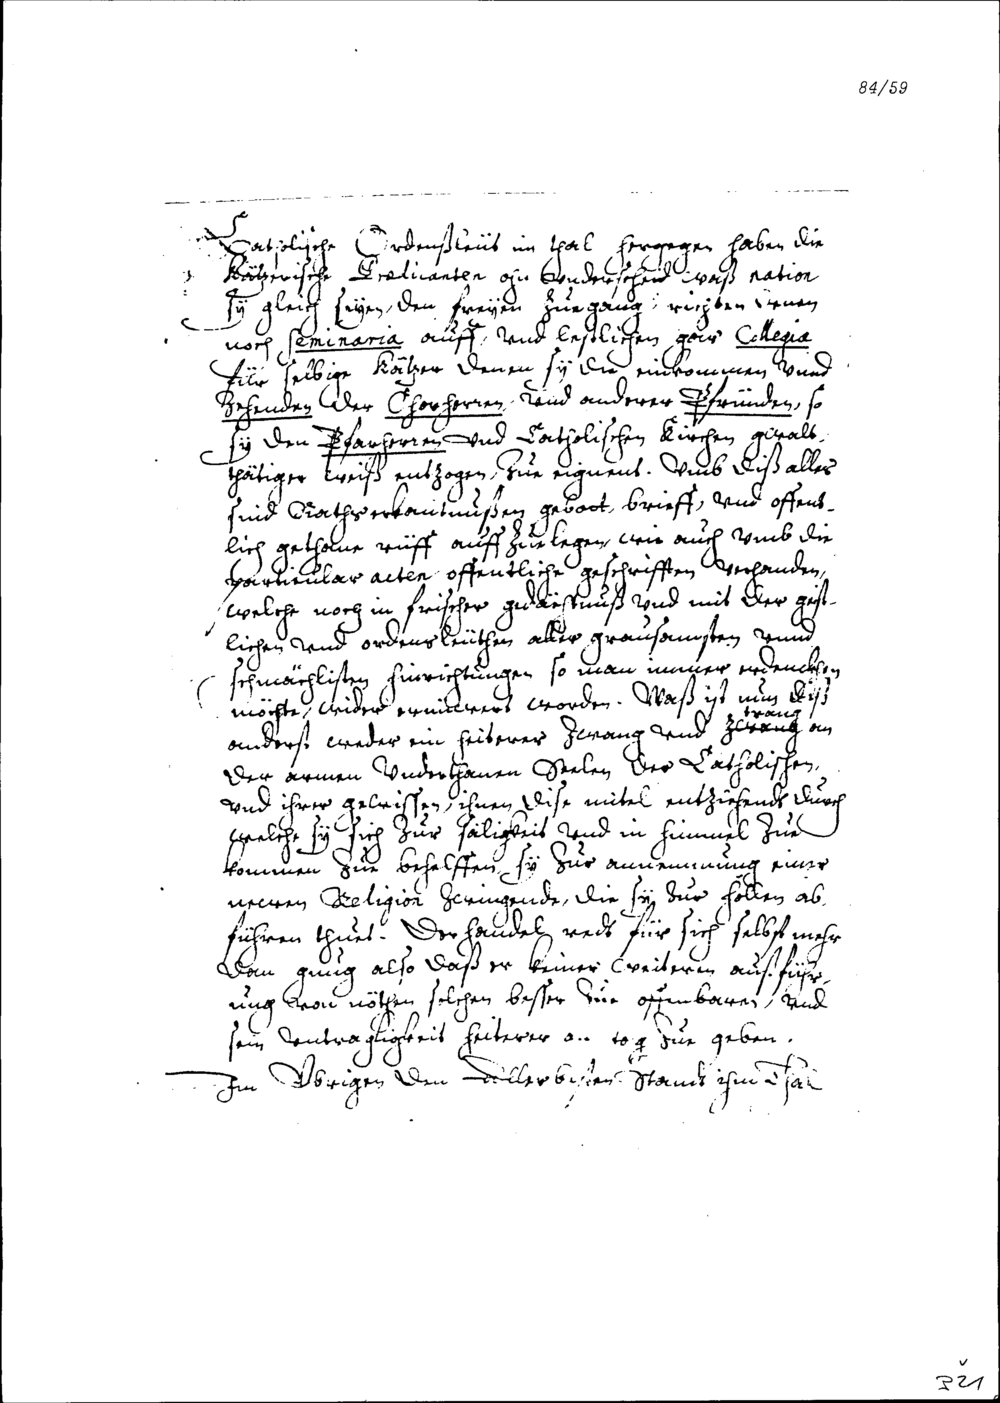 84/59
Catholische Ordenßleüt im thal hergegen haben die
Kätzerische Predicanten ohn underscheid waß nation
sÿ gleich seÿen, den freÿen zuegang, richten ihnen
noch seminaria auff, und lestlichen gar Collegia
für selbige Kätzer denen sÿ die einkommen unnd
Zehenden der Chorherren, und anderer Pfründen, so
sÿ den Pfarherren und Catholischen Kirchen gwalt-
thätiger weiß entzogen, zue eignent. Umb diß alles
sind Rathserkantnußen gebott, brieff, und offent-
lich gethane rüff auff zue legen, wie auch umb die
particular acten offentliche geschrifften verhanden,
welche noch in frischer gedächtnuß und mit der geist-
lichen und ordensleüthen aller grausamsten unnd
schmächlisten hinrichtungen so man immer erdenckhen
möchte, wider ernüwert worden. Waß ist nun diß
anderst weder ein heiterer zwang und trang an
der armen Underthanen Seelen der Catholischen,
und ihrer gewissen, ihnen dise mitel entziehends durch
welche sÿ sich zur säligkeit und in himmel zue
kommen zue behelffen, sÿ zur annemmung einer
newen Religion zwingende, die sÿ zur höllen ab-
führen thuet. Der handel redt für sich selbst mehr
dan gnug also daß er keiner weiteren außführ-
ung von nöthen solchen besser zue offenbaren, und
sein untragligkeit heiterer an tag zue geben.
Im Übrigen den allerbesten Standt ihm Thal
321